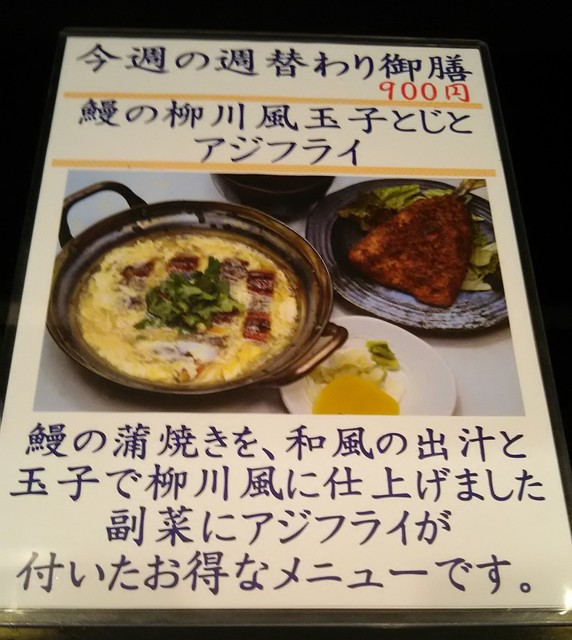 今週の週替わり御膳
900円
鰻の柳川風玉子とじと
アジフライ
鰻の蒲焼きを、和風の出汁と
玉子で柳川風に仕上げました
副菜にアジフライが
付いたお得なメニューです。